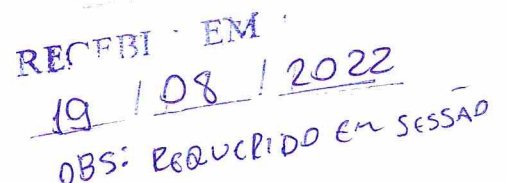 RECEBI EM
19 / 08 / 2022
OBS: REQUERIDO EM SESSÃO